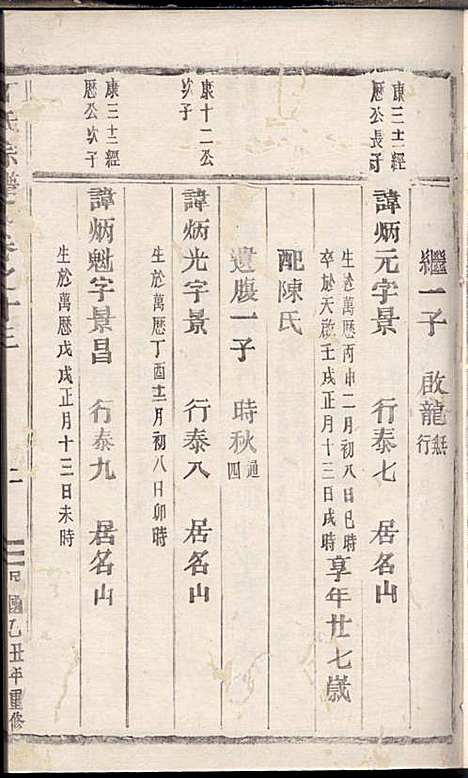 繼一子 啟龍 無行
康三士經歷公長子
諱炳元字景 行泰七 居名山
生於萬歷丙申二月初八日巳時
卒於天啟壬戌正月十三日戌時
享年廿七歲
配陳氏
遺腹一子 時秋 通四
康十二公次子
諱炳光字景 行泰八 居名山
生於萬歷丁酉十二月初八日卯時
康三士經歷公次子
諱炳魁字景昌 行泰九 居名山
生於萬歷戊戌正月十三日未時
氏宗譜 卷之十三
二
民國乙丑年重修